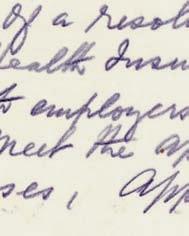 of a resol
Health Insu
to employers
meet the ap
ses, App